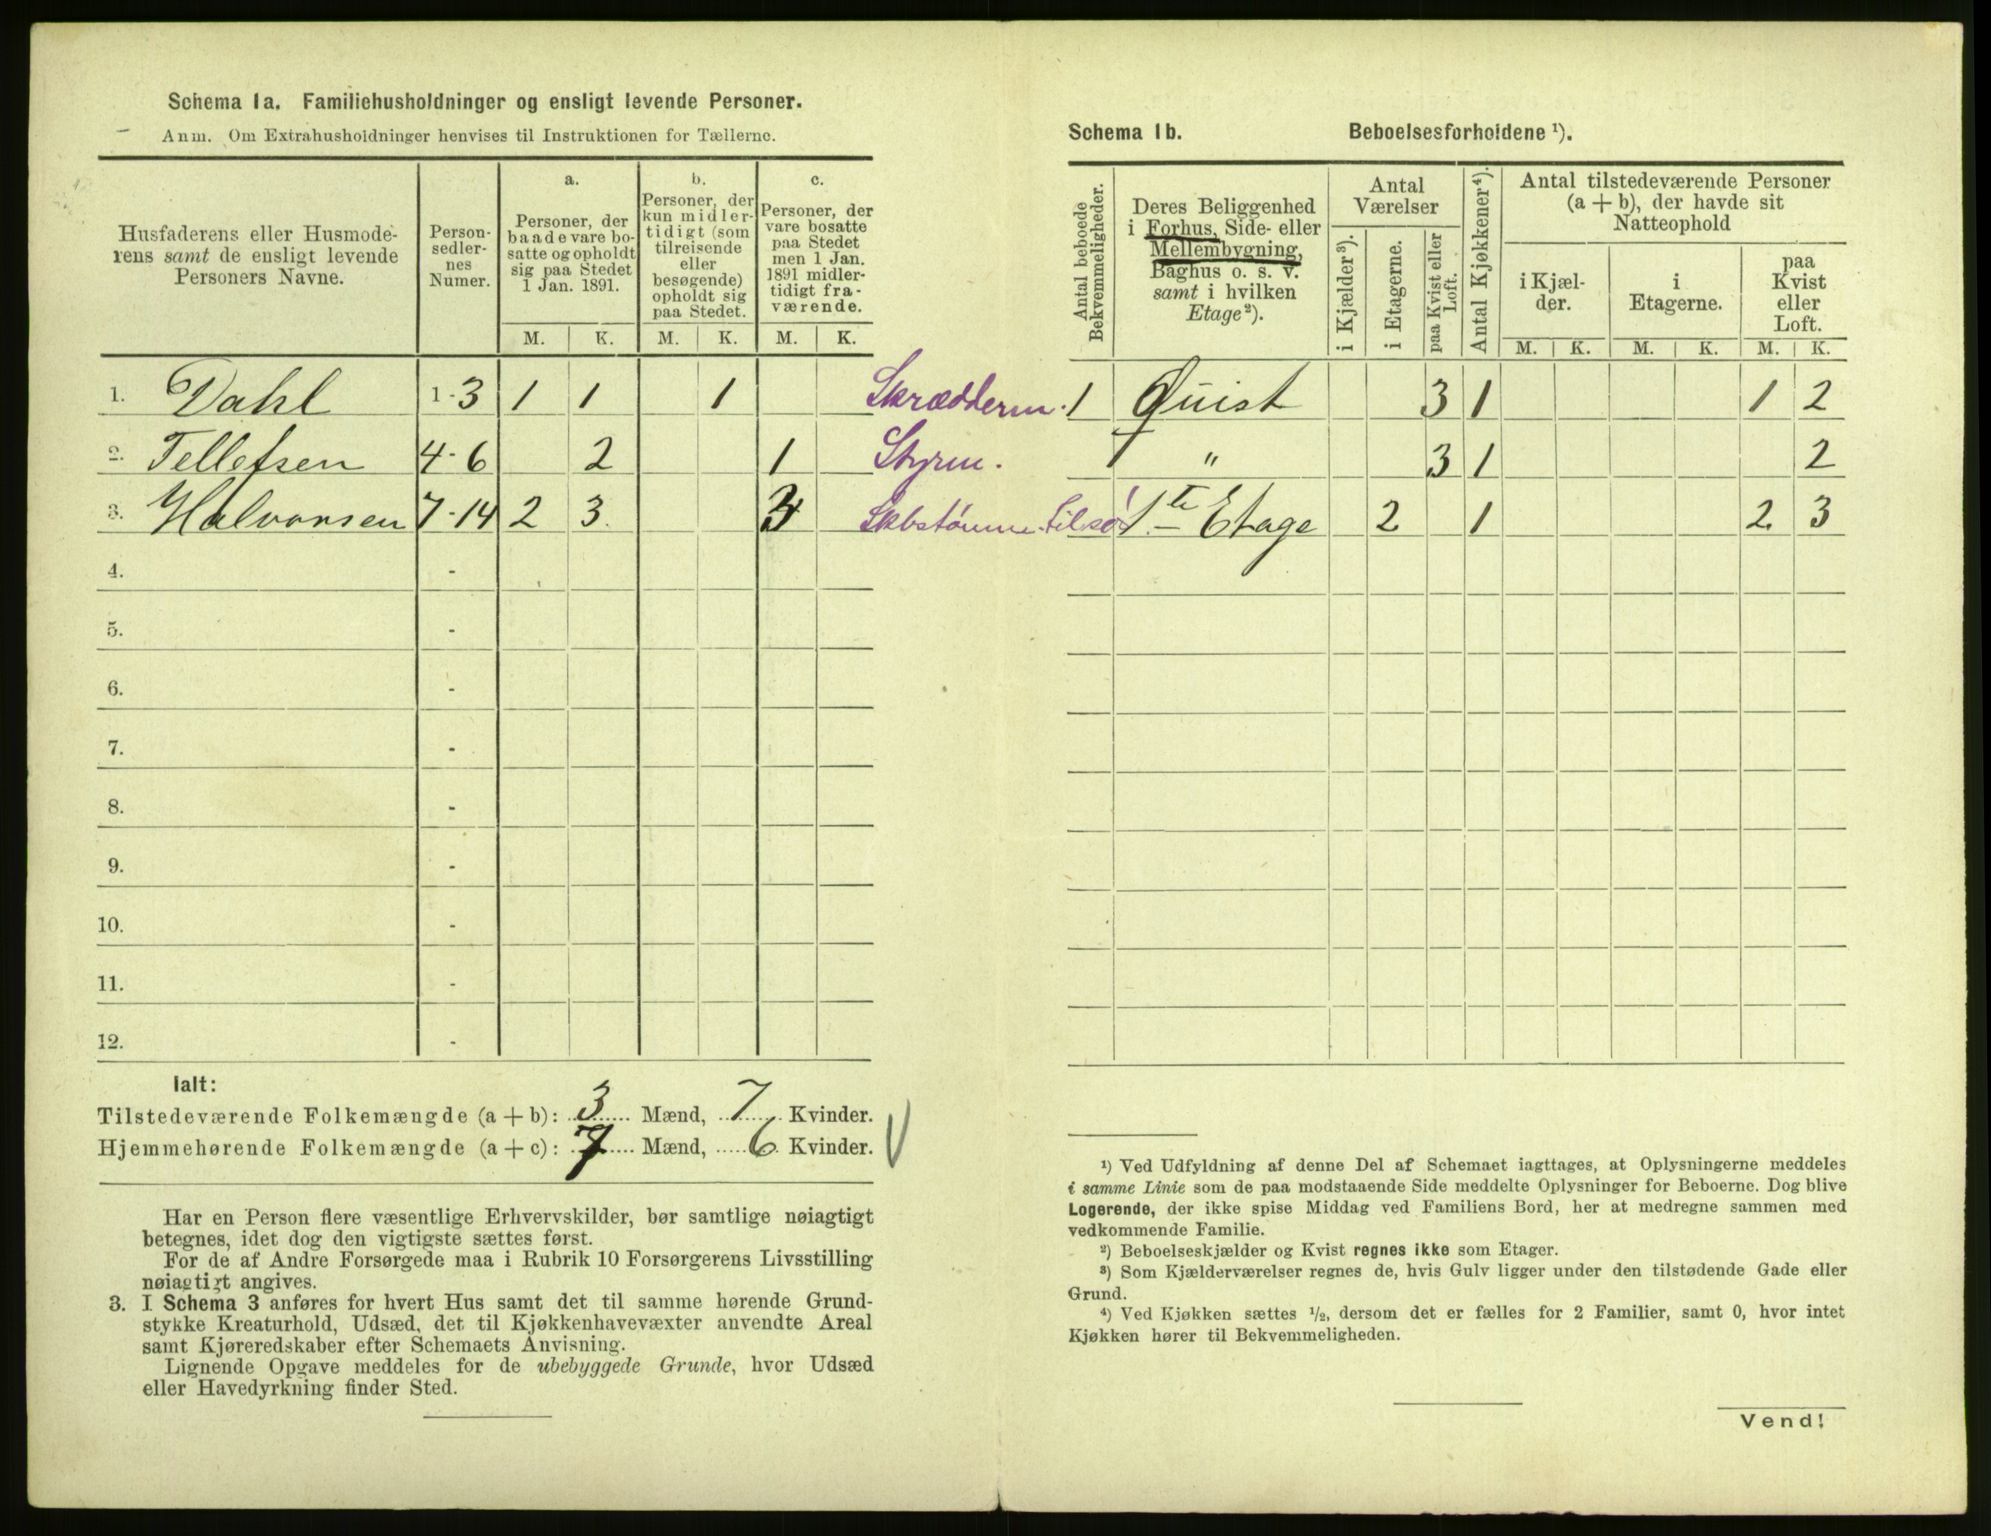 Schema 1a. Familiehusholdninger og ensligt levende Personer.
Anm. Om Extrahusholdninger henvises til Instruktionen for Tællerne.
Husfaderens eller Husmode-
rens samt de ensligt levende
Personers Navne.
Person-
sedler-
nes
Numer.
a.
Personer, der
baade vare bo-
satte og opholdt
sig paa Stedet
1 Jan. 1891.
b.
Personer, der
kun midler-
tidigt (som
tilreisende
eller
besøgende)
opholdt sig
paa Stedet.
c.
Personer, der
vare bosatte
paa Stedet
men 1 Jan.
1891 midler-
tidigt fra-
værende.
M. K. M. K. M. K.
1. Dahl 1-3 1 1 1 Skrædderm.
2. Tellefsen 4-6 2 1 Styrm.
3. Halvorsen 7-14 2 3
4. -
5. -
6. -
7. -
8. -
9. -
10. -
11. -
12. -
Ialt:
Tilstedeværende Folkemængde (a + b): 3 Mænd, 7 Kvinder.
Hjemmehørende Folkemængde (a + c): 7 Mænd, 6 Kvinder.
Har en Person flere væsentlige Erhvervskilder, bør samtlige nøiagtigt
betegnes, idet dog den vigtigste sættes først.
For de af Andre Forsørgede maa i Rubrik 10 Forsørgerens Livsstilling
nøiagtigt angives.
3. I Schema 3 anføres for hvert Hus samt det til samme hørende Grund-
stykke Kreaturhold, Udsæd, det til Kjøkkenhavevæxter anvendte Areal
samt Kjøreredskaber efter Schemaets Anvisning.
Lignende Opgave meddeles for de ubebyggede Grunde, hvor Udsæd
eller Havedyrkning finder Sted.
Schema 1b. Beboelsesforholdene ¹).
Antal beboede
Bekvemmeligheder.
Deres Beliggenhed
i Forhus, Side- eller
Mellembygning,
Baghus o. s. v.
samt i hvilken
Etage ²).
Antal
Værelser
i Kjælder ³).
i Etagerne.
paa Kvist eller
Loft.
Antal Kjøkkener ⁴).
Antal tilstedeværende Personer
(a + b), der havde sit
Natteophold
i Kjæl-
der.
i
Etagerne.
paa
Kvist
eller
Loft.
M. K. M. K. M. K.
1 Quist 3 1 1 2
1 " 3 1 2
1te Etage 2 1 2 3
¹) Ved Udfyldning af denne Del af Schemaet iagttages, at Oplysningerne meddeles
i samme Linie som de paa modstaaende Side meddelte Oplysninger for Beboerne. Dog blive
Logerende, der ikke spise Middag ved Familiens Bord, her at medregne sammen med
vedkommende Familie.
²) Beboelseskjælder og Kvist regnes ikke som Etager.
³) Som Kjælderværelser regnes de, hvis Gulv ligger under den tilstødende Gade eller
Grund.
⁴) Ved Kjøkken sættes ½, dersom det er fælles for 2 Familier, samt 0, hvor intet
Kjøkken hører til Bekvemmeligheden.
Vend!